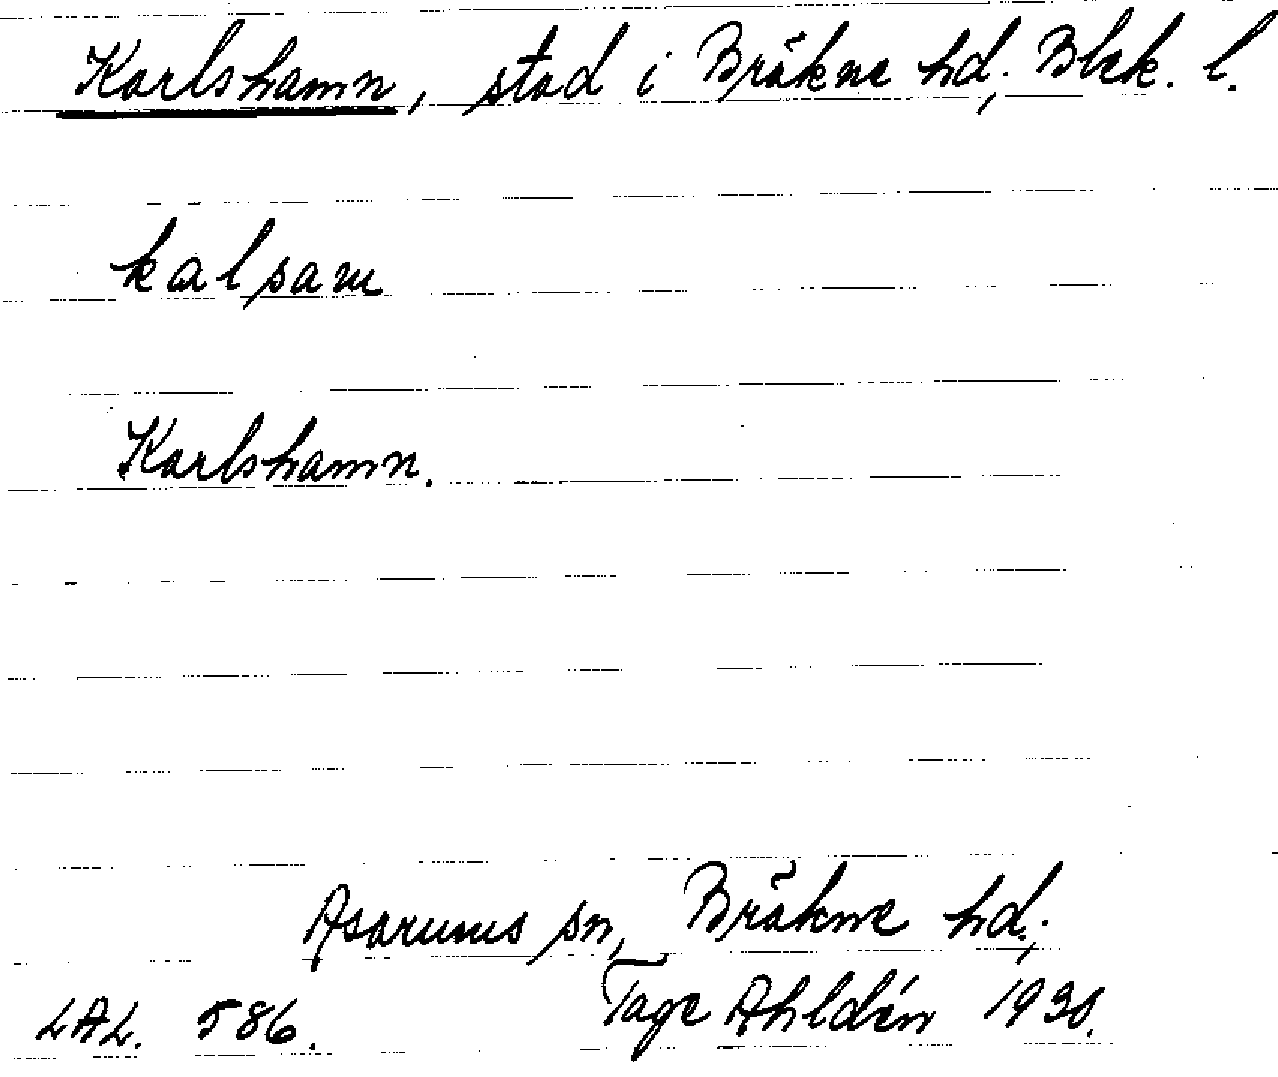 Karlshamn, stad i Bräkne hd, Blek. l.
kalsam
Karlshamn.
Asarums sn, Bräkne hd,.
LAL. 586. Tage Ahldén 1930.